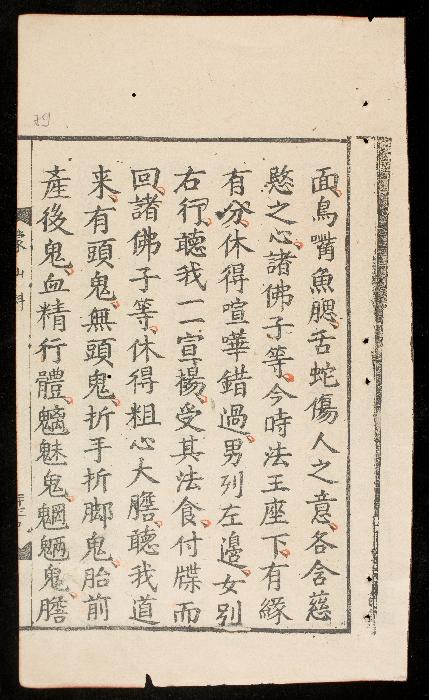 面鳥嘴魚腮舌蛇傷人之意各含慈
愍之心諸佛子等今時法王座下有緣
有分休得喧嘩錯過男列左邊女列
右行聽我一一宣揚受其法食付牒而
回諸佛子等休得粗心大膽聽我道
来有頭鬼無頭鬼折手折脚鬼胎前
產後鬼血精行體魑魅鬼魍魎鬼膽
山科
79